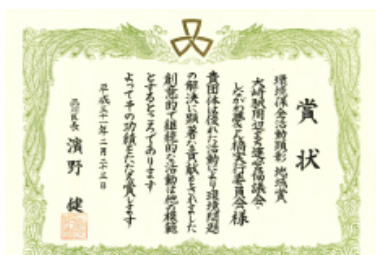 賞状
環境保全活動顕彰 地域賞
大崎駅周辺まち運営協議会
しながわ夢さん橋実行委員会 様
貴団体は優れた活動により環境問題
の解決に顕著な貢献をされました
創意的で継続的な活動は他の模範
とするところであります
よってその功績をたたえ賞します
平成三十一年二月二十三日
品川区長 濱野 健